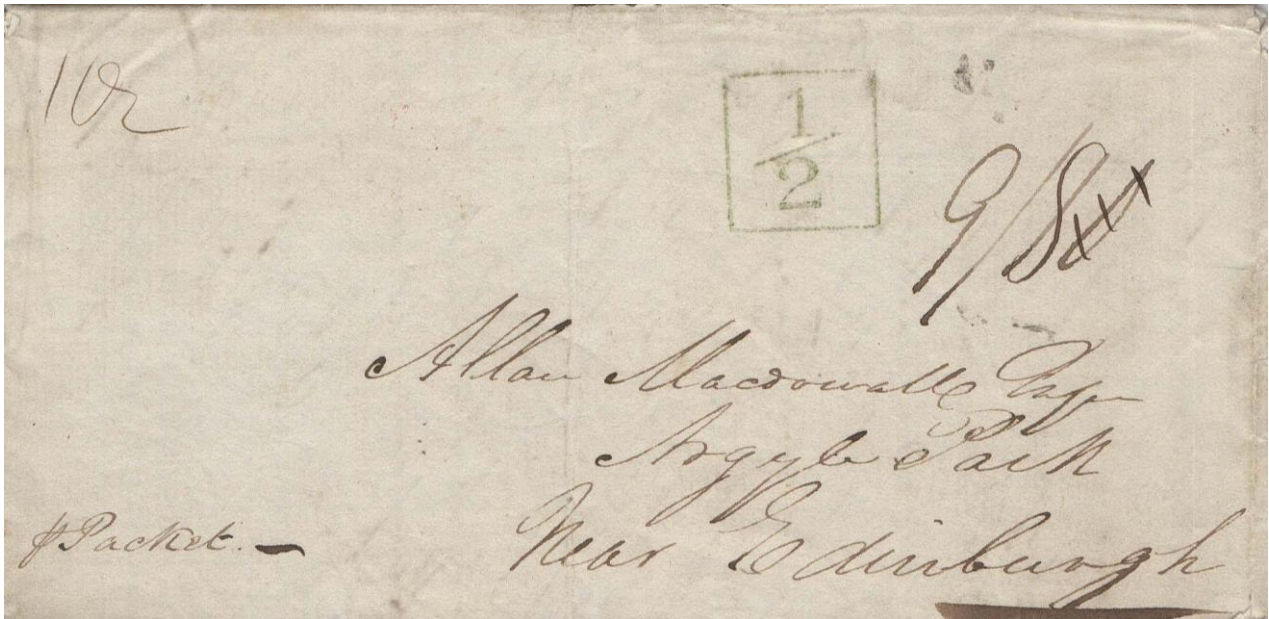 1 Oz
1/2
9/8
Allan Macdowall Esqr
Argyle Park
Near Edinburgh
p Packet.